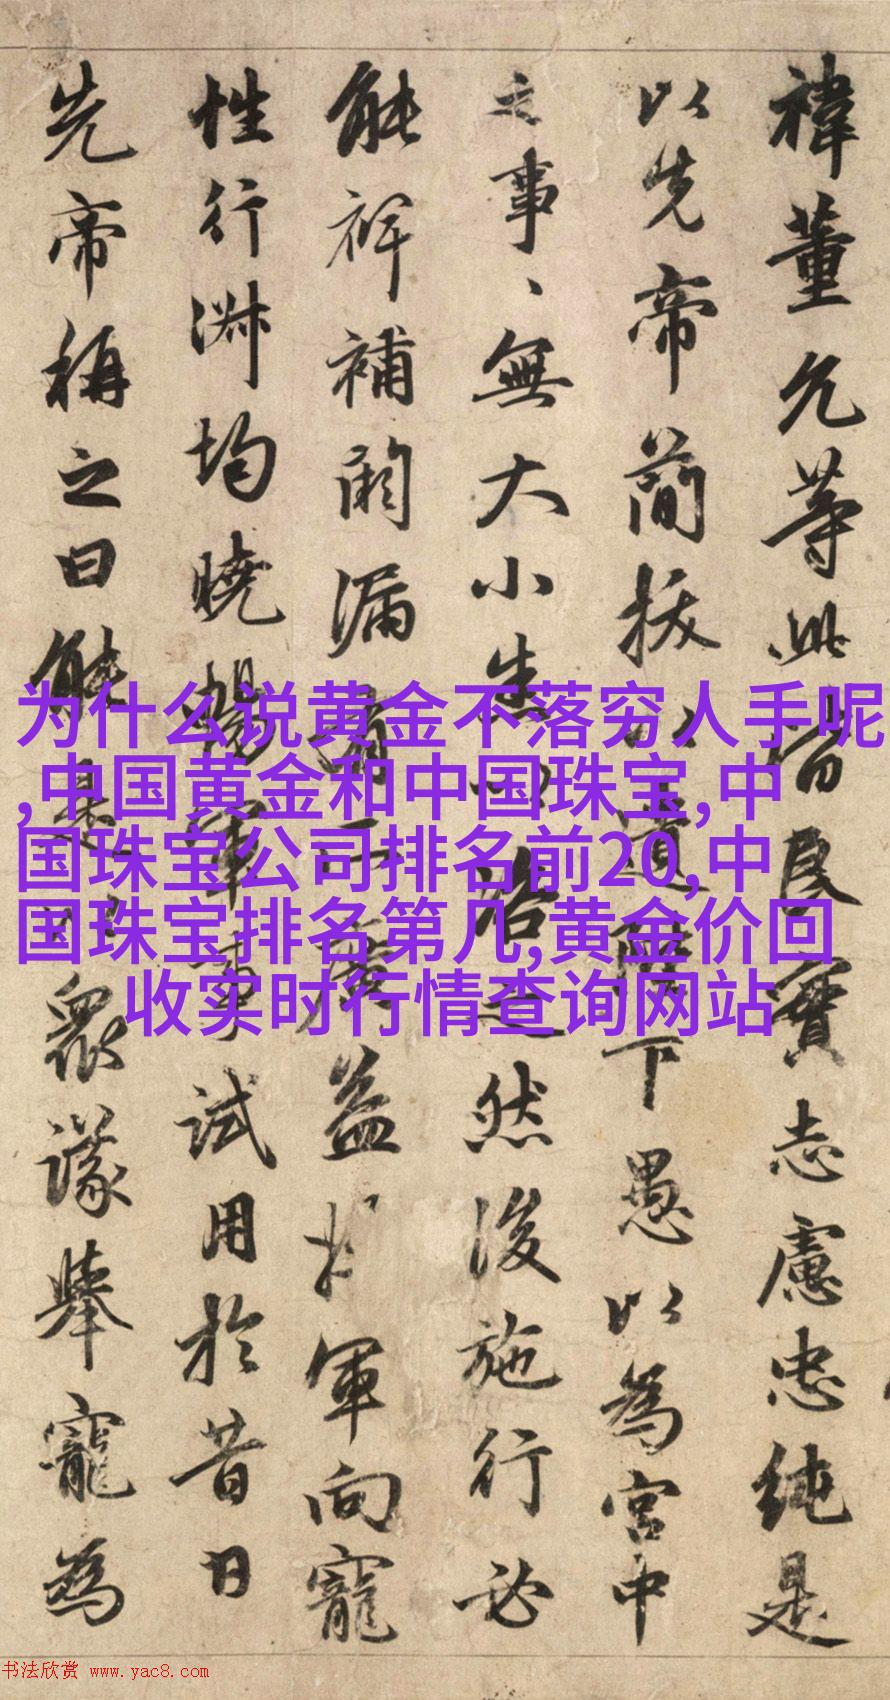 禕董允等此皆良實志慮忠純是
以先帝簡拔以遺陛下愚以為宮中
之事、無大小悉以咨之然後施行必
能裨補闕漏有廣益将軍向寵
性行淑均曉暢軍事試用於昔日
先帝稱之曰能是以衆議舉寵為
为什么说黄金不落穷人手呢
,中国黄金和中国珠宝,中
国珠宝公司排名前20,中
国珠宝排名第几,黄金价回
收实时行情查询网站
书法欣赏 www.yac8.com